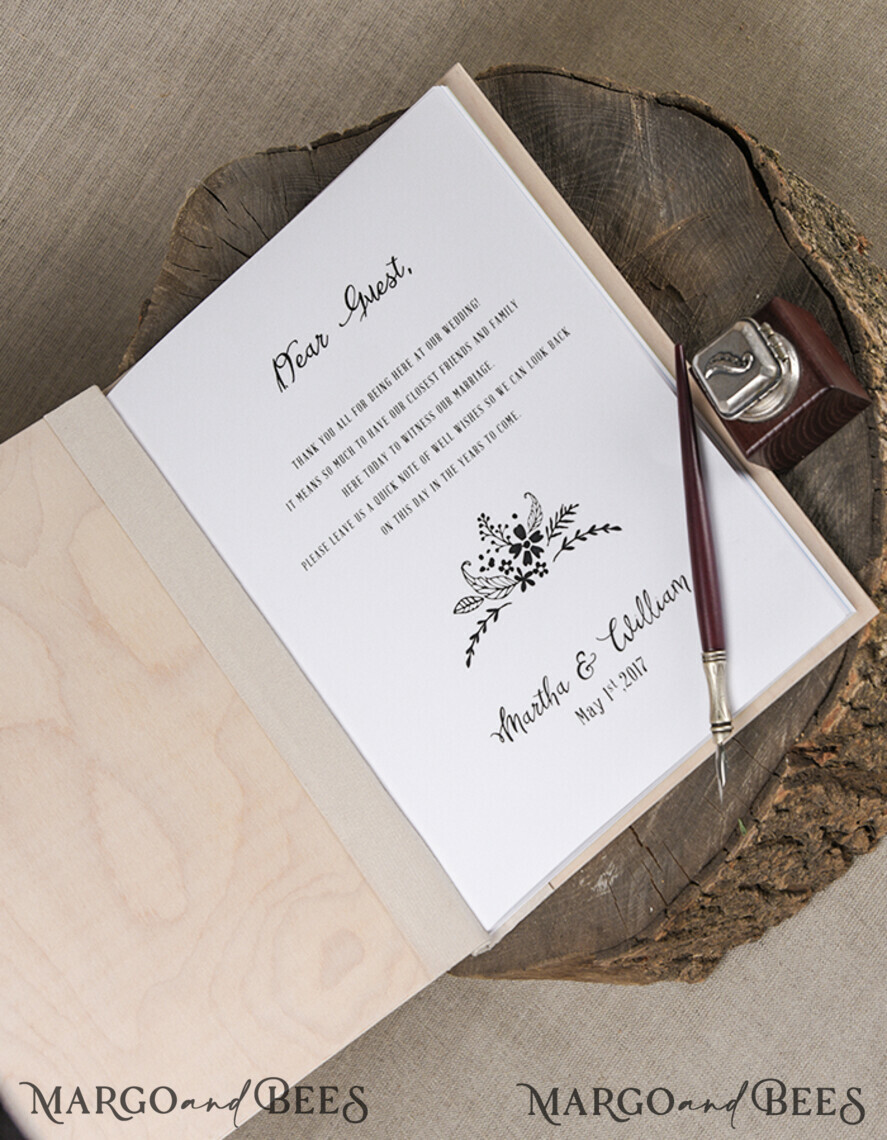 Dear Guest,
THANK YOU ALL FOR BEING HERE AT OUR WEDDING!
IT MEANS SO MUCH TO HAVE OUR CLOSEST FRIENDS AND FAMILY
HERE TODAY TO WITNESS OUR MARRIAGE.
PLEASE LEAVE US A QUICK NOTE OF WELL WISHES SO WE CAN LOOK BACK
ON THIS DAY IN THE YEARS TO COME.
Martha & William
May 1st,2017
MARGO and BEES
MARGO and BEES